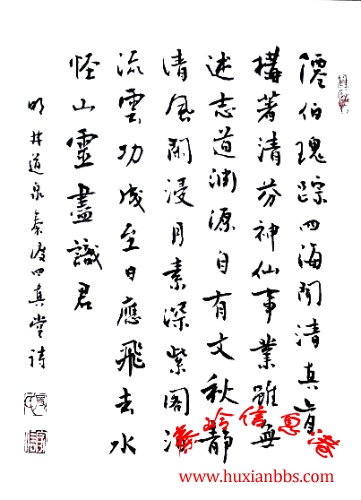 僊伯瑰踪四海聞清真
構著清芬神仙事業雖無
述志道淵源自有文秋靜
清風閑浸月素深紫閣
流雲功成至日應飛去水
怪山靈盡識君
明井道泉秦渡四真堂詩
秦岭信息港
www.huxianbbs.com